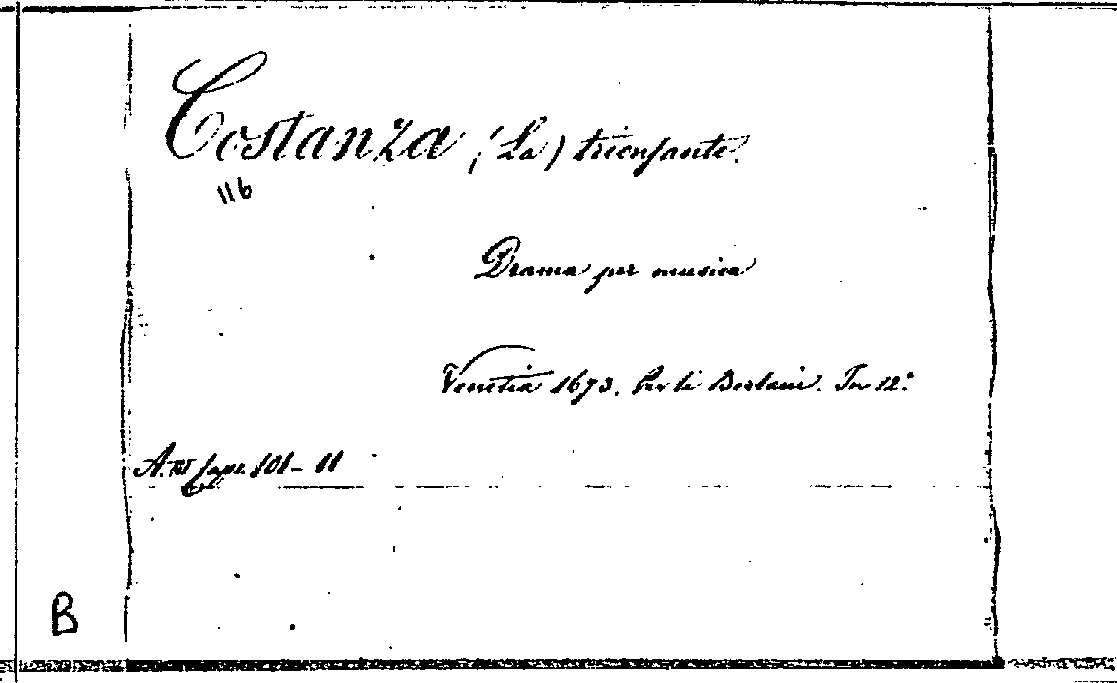 Costanza (La) trionfante.
116
Drama per musica
Venetia 1673. Per li Bertani. In 12.°
101-11
B